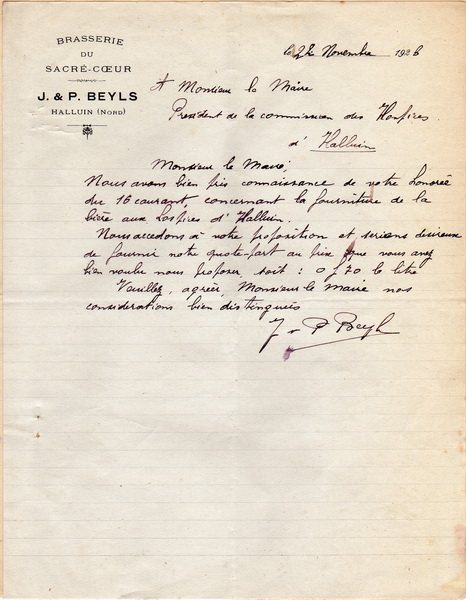 BRASSERIE
DU
SACRÉ-CŒUR
J. & P. BEYLS
HALLUIN (NORD)
le 22 Novembre 1926
A Monsieur le Maire
President de la commission des Hospices
d' Halluin
Monsieur le Maire,
Nous avons bien pris connaissance de votre honorée
du 16 courant, concernant la fourniture de la
bière aux hospices d' Halluin.
Nous accedons à votre proposition et serions desireux
de fournir notre quote-part au prix que vous avez
bien voulu nous proposer, soit : 0 f 70 le litre
Veuillez, agréer, Monsieur le Maire nos
considerations bien distinguées
J & P Beyls